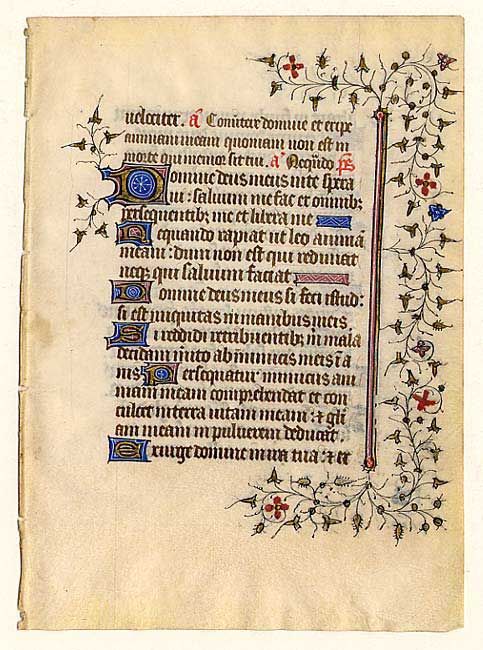 ueleciter. a Conuertere domine et eripe
animam meam quoniam non est in
morte qui memor sit tui. a Nequando ps
Domine deus meus in te spera
ui: saluum me fac ex omnibz
persequentibz me et libera me
Nequando rapiat ut leo animā
meam: dum non est qui redimat
necqz qui saluum faciat
Domine deus meus si feci istud:
si est iniquitas in manibus meis
Si reddidi retribuentibz m mala
decidam mito ab inimicis meis ī a
nis Persequatur inimicus ani
mam meam comprehendat et con
culcet in terra uitam meam: et glī
am meam in puluerem deducat
Exurge domine in ira tua: et ex